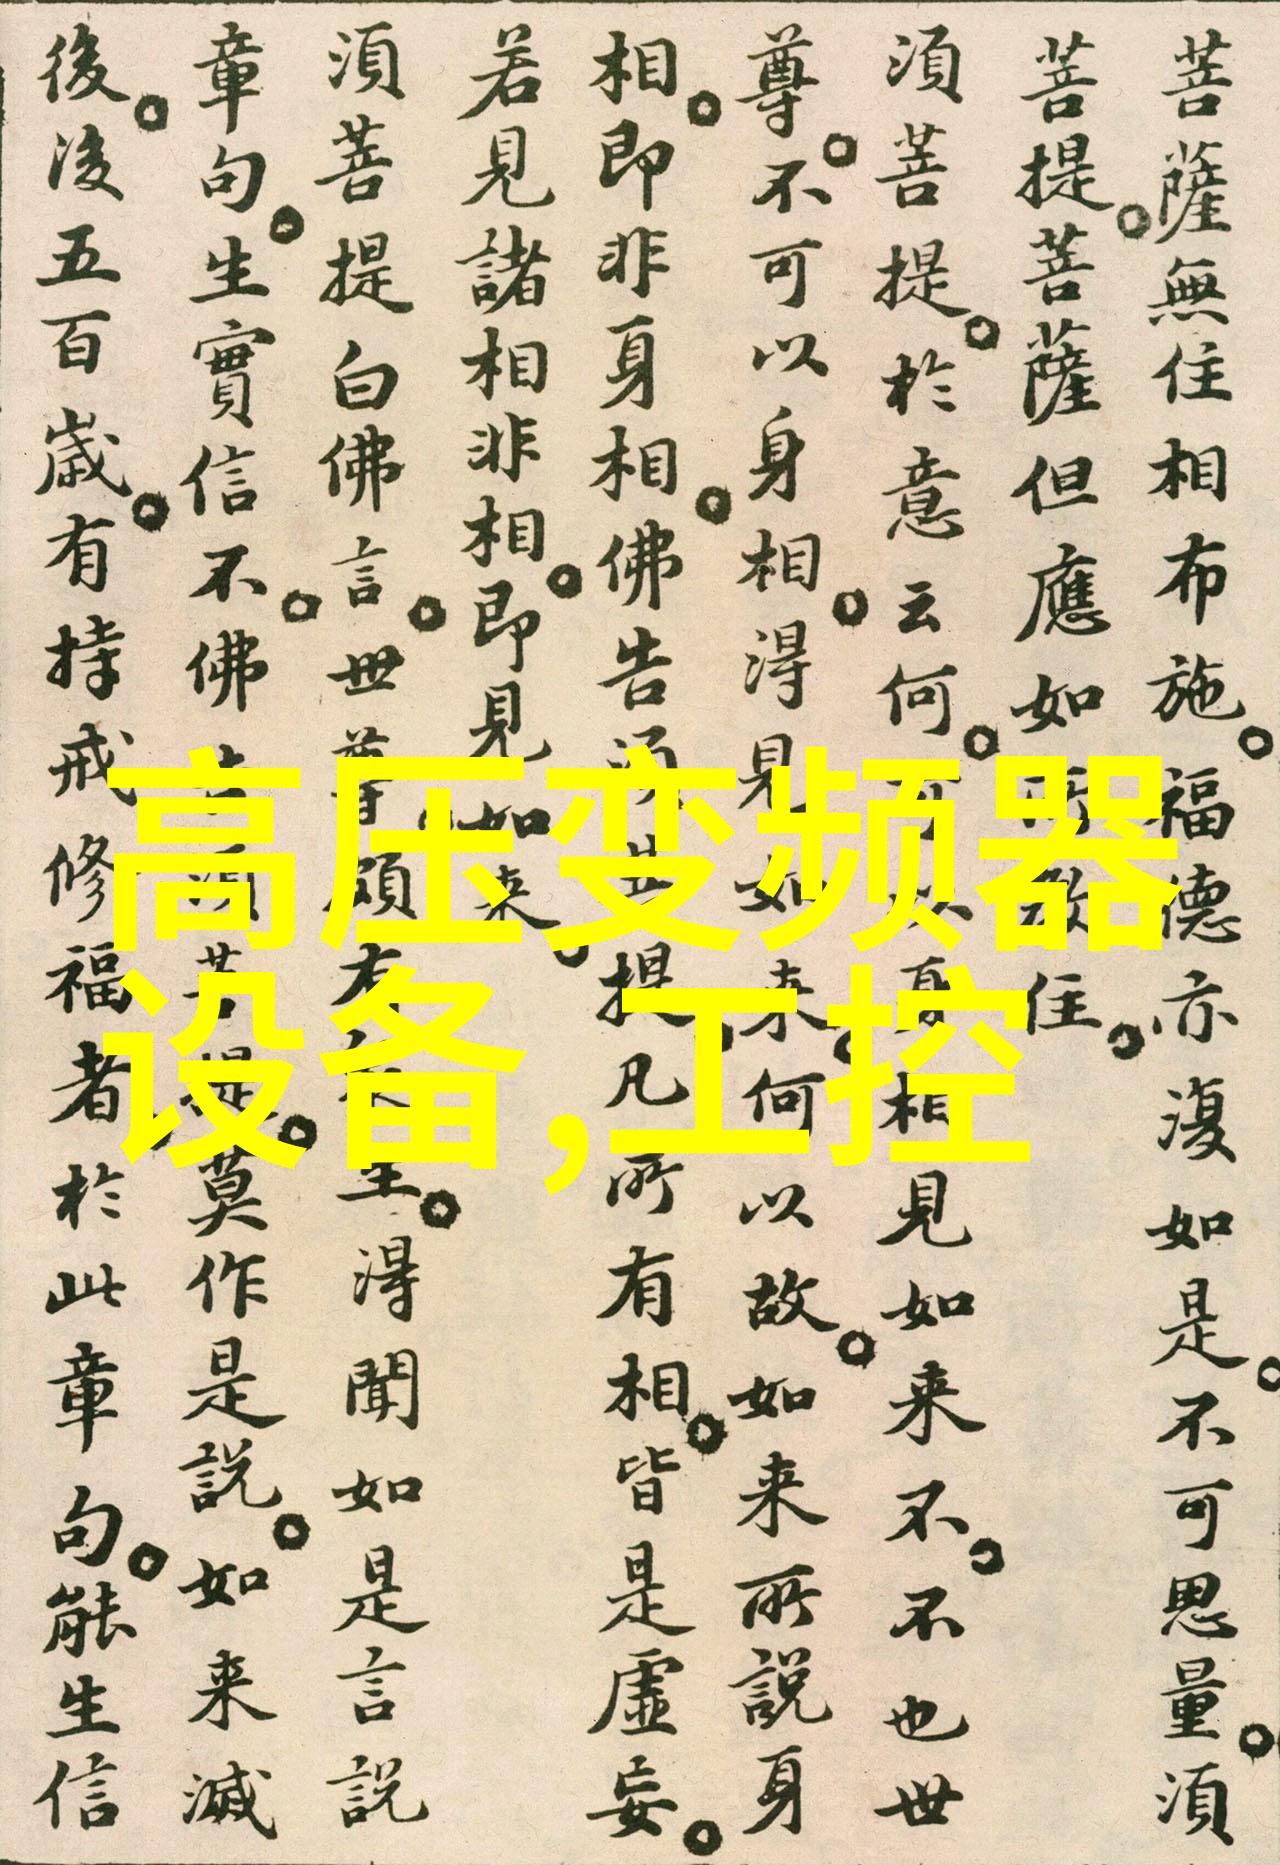 菩薩無住相布施福德亦復如是不可思量須
菩提菩薩但應如所教住
須菩提於意云何可以身相見如来不不也世
尊不可以身相得見如来何以故如来所說身
相即非身相佛告須菩提凡所有相皆是虛妄
若見諸相非相即見如来
須菩提白佛言世尊頗有衆生得聞如是言說
章句生實信不佛告須菩提莫作是說如来滅
後後五百歲有持戒修福者於此章句能生信
高压变频器
设备,工控